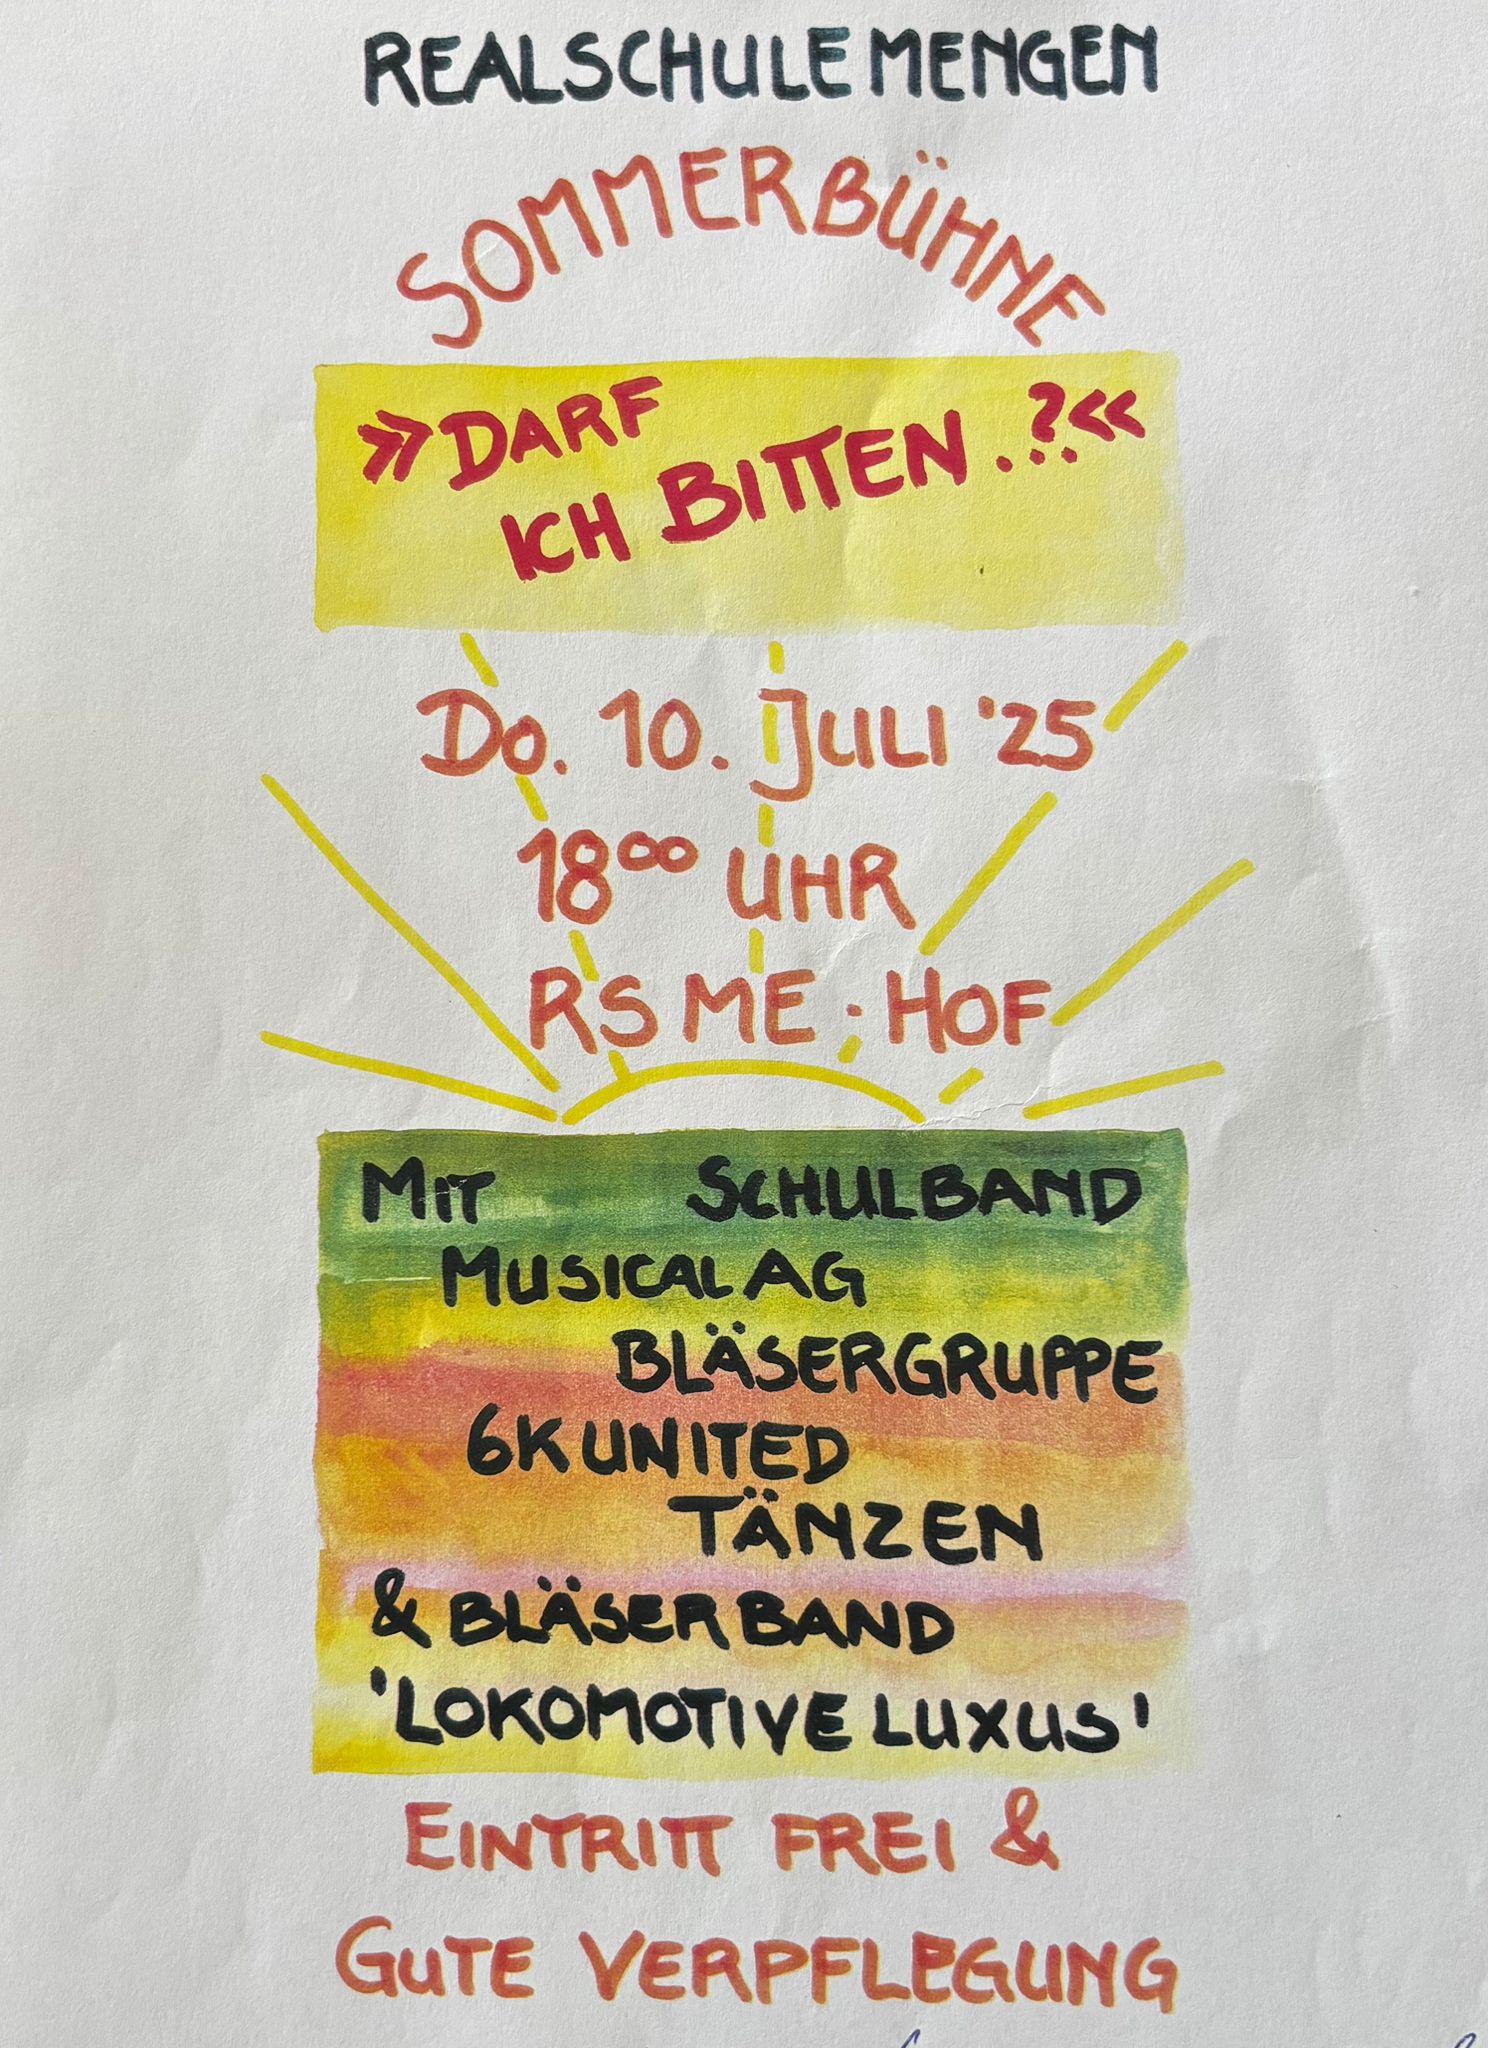 REALSCHULE MENGEN
SOMMERBÜHNE
»DARF
ICH BITTEN..?.«
Do. 10. JULI '25
18⁰⁰ UHR
RS ME · HOF
MIT SCHULBAND
MUSICAL AG
BLÄSERGRUPPE
6K UNITED
TÄNZEN
& BLÄSERBAND
'LOKOMOTIVE LUXUS'
EINTRITT FREI &
GUTE VERPFLEGUNG